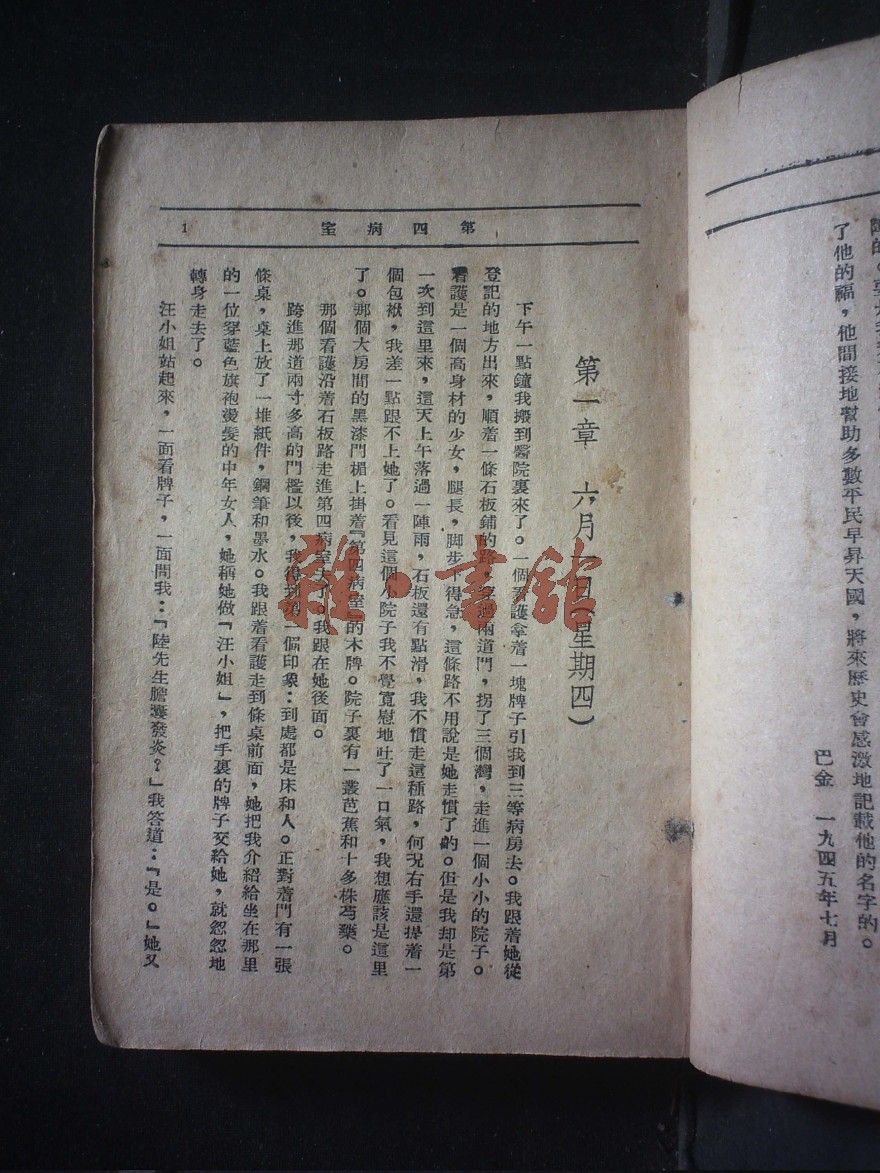 了他的福，他間接地幫助多數平民早昇天國，將來歷史會感激地記載他的名字的。
巴金　一九四五年七月
第四病室
1
第一章　六月一日（星期四）
下午一點鐘我搬到醫院裏來了。一個看護拿着一塊牌子引我到三等病房去。我跟着她從
登記的地方出來，順着一條石板鋪的路，穿過兩道門，拐了三個灣，走進一個小小的院子。
看護是一個高身材的少女，腿長，脚步下得急，這條路不用說是她走慣了的。但是我却是第
一次到這里來，這天上午落過一陣雨，石板還有點滑，我不慣走這種路，何況右手還提着一
個包袱，我差一點跟不上她了。看見這個小院子我不覺寬慰地吐了一口氣，我想應該是這里
了。那個大房間的黑漆門楣上掛着『第四病室』的木牌。院子裏有一叢芭蕉和十多株芍藥。
那個看護沿着石板路走進第四病室去。我跟在她後面。
跨進那道兩寸多高的門檻以後，我得到第一個印象：到處都是床和人。正對着門有一張
條桌，桌上放了一堆紙件，鋼筆和墨水。我跟着看護走到條桌前面，她把我介紹給坐在那里
的一位穿藍色旗袍燙髮的中年女人，她稱她做『汪小姐』，把手裏的牌子交給她，就怱怱地
轉身走去了。
汪小姐站起來，一面看牌子，一面問我：『陸先生膽囊發炎？』我答道：『是。』她又
雜·書館